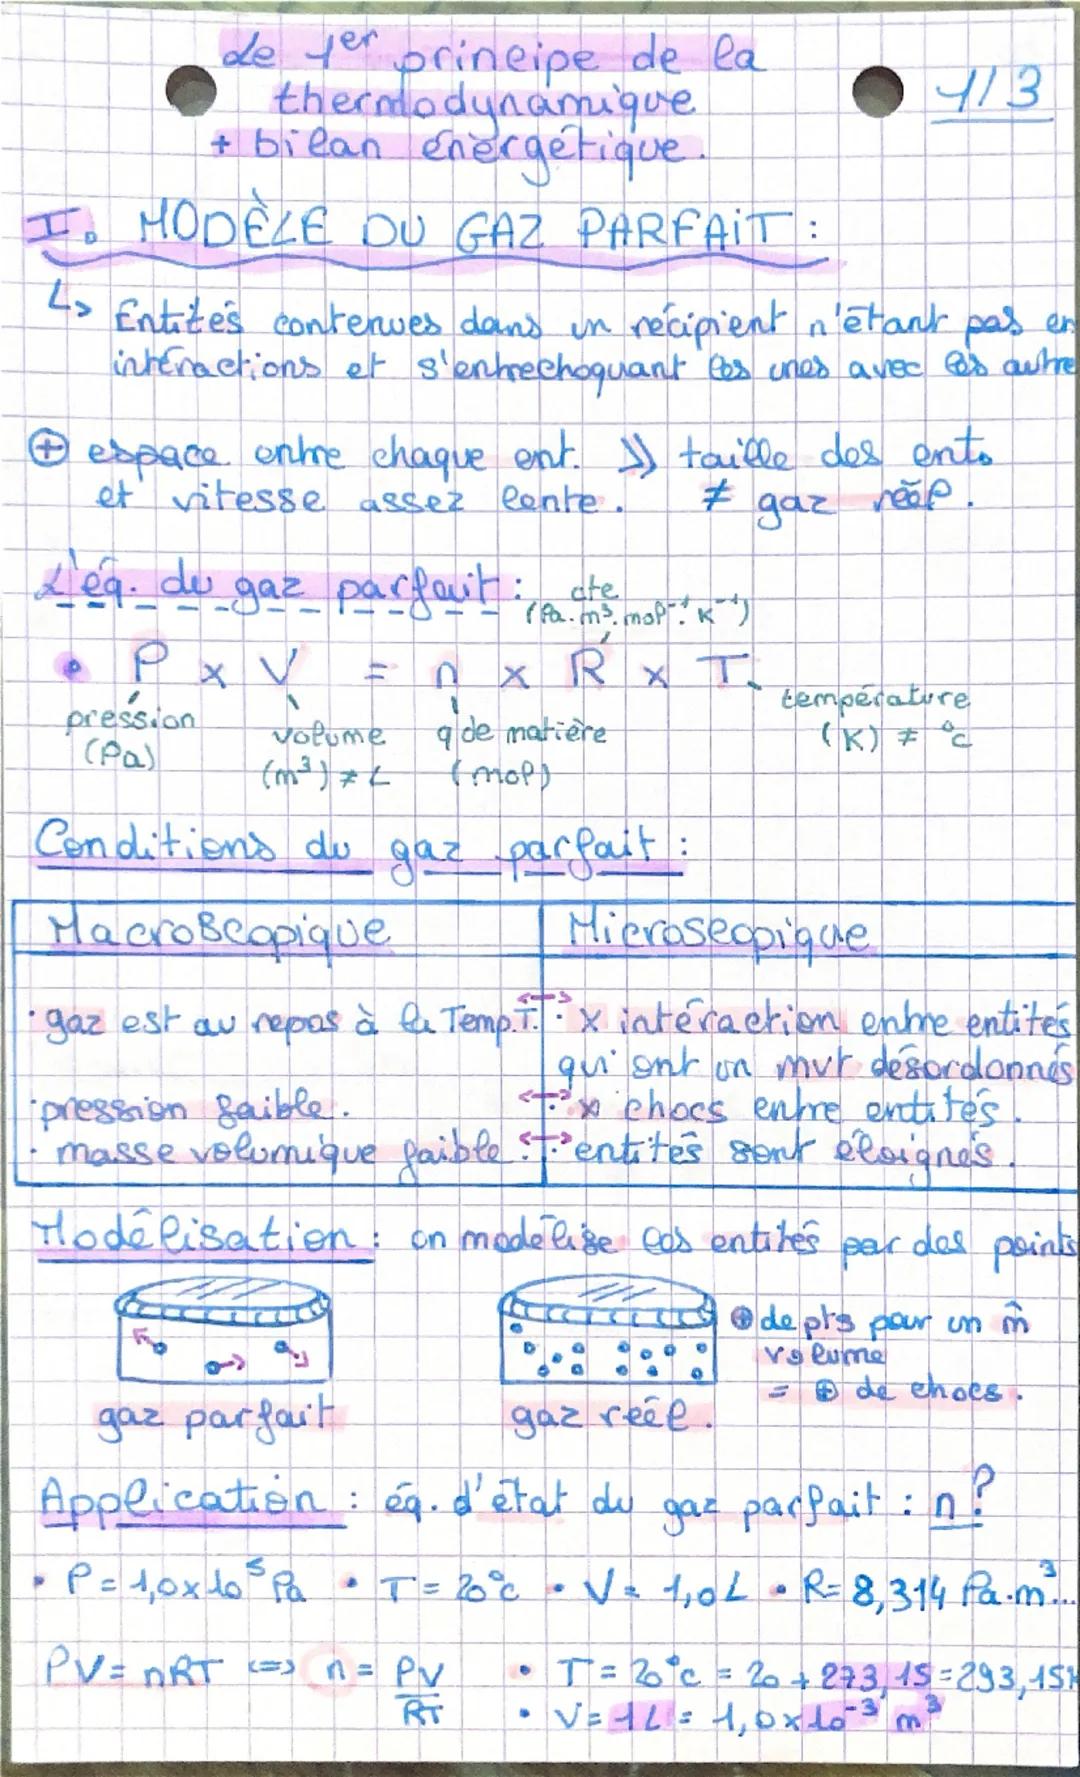 Le 1er principe de la
thermodynamique
+ bilan énergétique.
1/3
I. MODÈLE DU GAZ PARFAIT :
↳ Entités contenues dans un récipient n'étant pas en
intéractions et s'entrechoquant les unes avec les autre
⊕ espace entre chaque ent. >> taille des ents
et vitesse assez lente. ≠ gaz réel.
L'éq. du gaz parfait :
cte
(Pa.m³.mol⁻¹.K⁻¹)
• P x V = n x R x T
pression
(Pa)
volume
(m³) ≠ L
q de matière
(mol)
température
(K) ≠ °c
Conditions du gaz parfait :
Macroscopique
Microscopique
• gaz est au repos à la Temp.T. ↔ • x intéraction entre entités
qui ont un mvt désordonnés
• pression faible. ↔ • x chocs entre entités.
• masse volumique faible. ↔ • entités sont éloignés.
Modélisation : on modélise les entités par des points
⊕ de pts pour un m̂
volume
= ⊕ de chocs.
gaz parfait
gaz réel.
Application : éq. d'état du gaz parfait : n?
• P = 1,0x10⁵ Pa • T = 20°c • V = 1,0L • R= 8,314 Pa.m³...
PV = nRT <=> n = PV/RT
• T = 20°c = 20 + 273,15 = 293,15K
• V = 1L = 1,0x10⁻³ m³